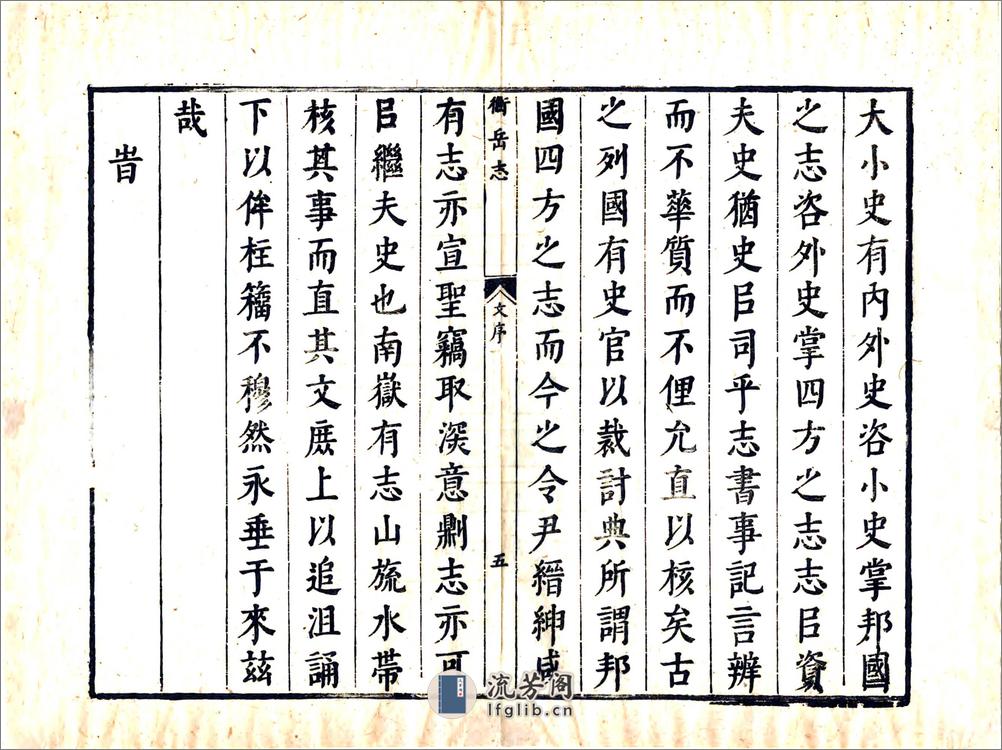 大小史有內外史咨小史掌邦國
之志咨外史掌四方之志志㠯資
夫史猶史㠯司乎志書事記言辨
而不華質而不俚允直以核矣古
之列國有史官以裁討典所謂邦
國四方之志而今之令尹縉紳咸
衡岳志
文序
五
有志亦宣聖竊取深意志亦可
㠯繼夫史也南嶽有志山旒水帶
核其事而直其文庶上以追沮誦
下以侔柱籀不穆然永垂于來茲
哉
旹
流芳阁
lfglib.cn